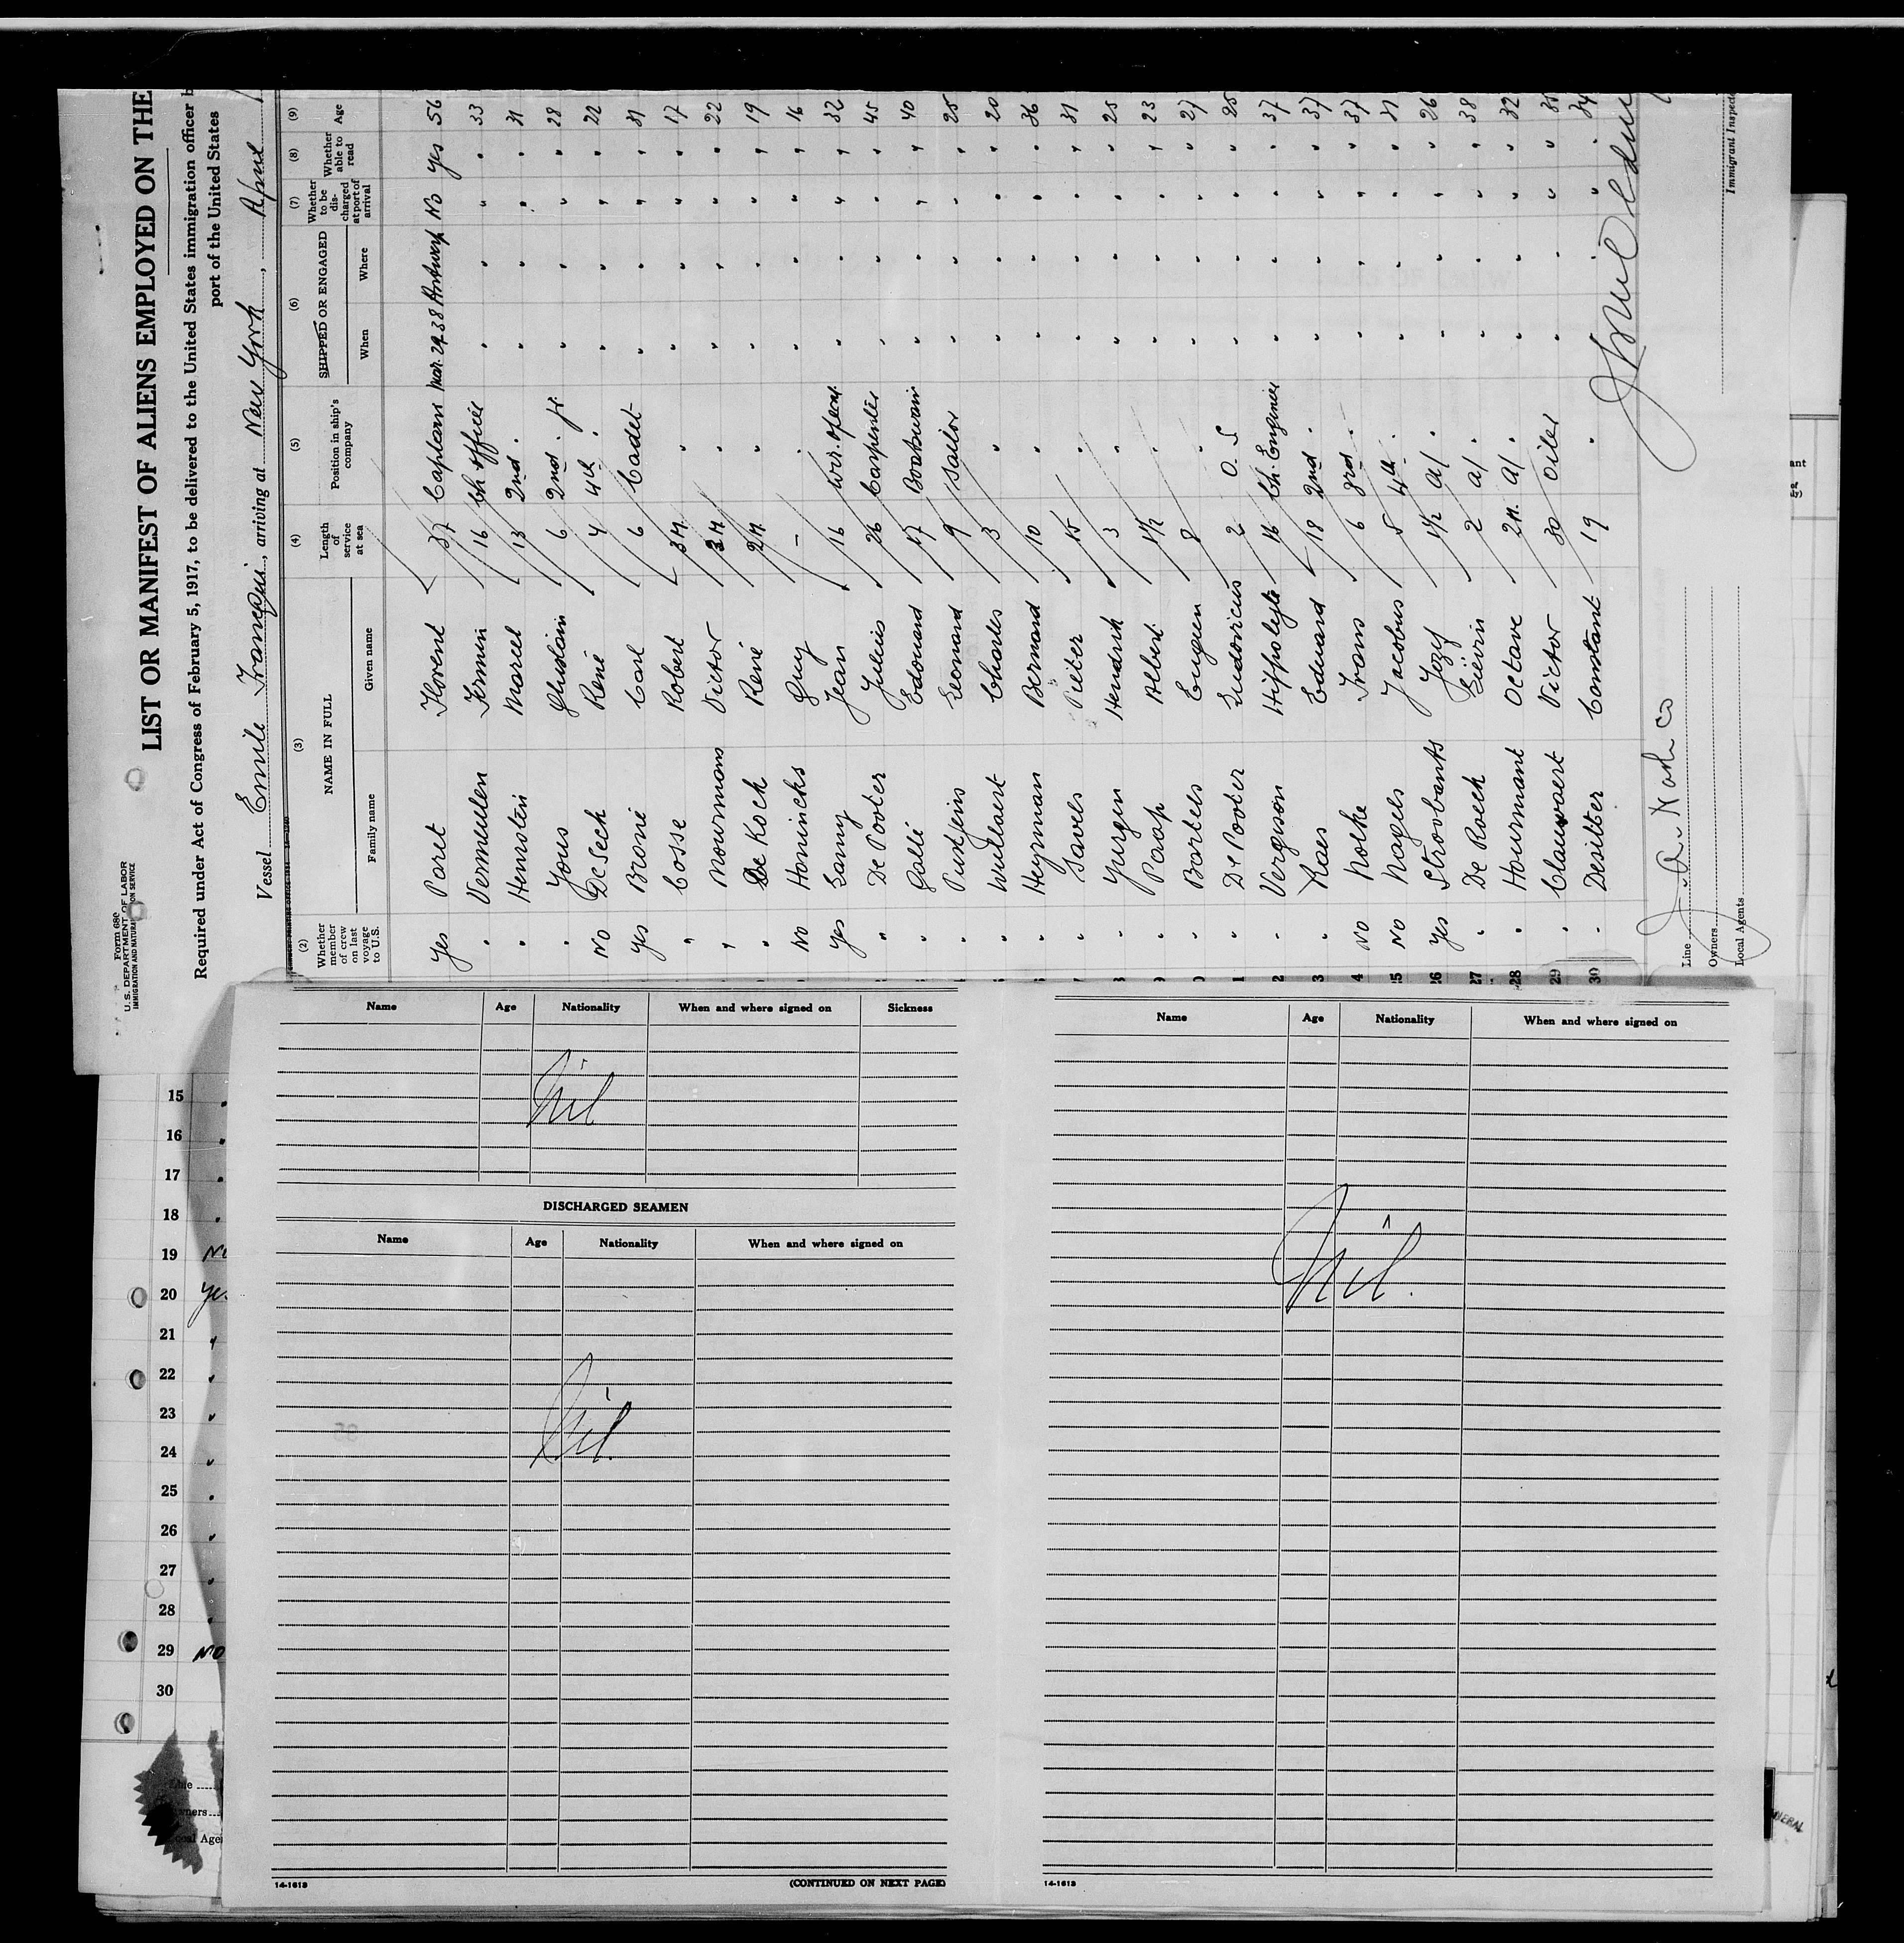 Form 680
U. S. DEPARTMENT OF LABOR
IMMIGRATION AND NATURALIZATION SERVICE
LIST OR MANIFEST OF ALIENS EMPLOYED ON THE
Required under Act of Congress of February 5, 1917, to be delivered to the United States immigration officer b
port of the United States
Vessel Emile Francqui, arriving at New York, April
(2) (3) (4) (5) (6) (7) (8) (9)
Whether member of crew on last voyage to U.S. NAME IN FULL Length of service at sea Position in ship's company SHIPPED OR ENGAGED Whether to be discharged at port of arrival Whether able to read Age
Family name Given name When Where
Yes Paret Florent 37 Captain Mar. 29.38 Antwerp No Yes 56
" Vermeulen Firmin 16 Ch officer " " " " 33
" Marcel 13 2nd " " " " " 31
" Yous Ghislain 6 2nd " jr. " " " " 28
No De Sech René 4 4th " " " " " 22
Yes Bronié Carl 6 Cadet " " " " 31
" Cosse Robert 3 M. " " " " " 17
" Mourmans Victor 3 M. " " " " " 22
" De Kock René 2 M. " " " " " 19
No Honinckx Guy - " " " " " 16
Yes Lamy Jean 16 Wir. operat. " " " " 32
" De Pooter Julius 26 Carpenter " " " " 45
" Galli Edouard 17 Boatswain " " " " 40
" Leonard 9 Sailor " " " " 25
" Wullaert Charles 3 " " " " " 20
" Heyrman Bernard 10 " " " " " 36
" Saves Pieter 15 " " " " " 31
" Yurgen Hendrik 3 " " " " " 25
" Raap Albert 1 1/2 " " " " " 23
" Bartels Eugeen 8 " " " " " 27
" De Pooter Ludovicus 2 O.S " " " " 25
" Vergison Hippolyte 16 Ch. Engineer " " " " 37
" Raes Eduard 18 2nd " " " " " 37
No Nolke Frans 6 3rd " " " " " 37
No Nagels Jacobus 5 4th " " " " " 31
26 Yes Stroobants Jozef 1 1/2 a/ " " " " " 26
27 " De Roeck Liévin 2 a/ " " " " " 38
28 " Hourmant Octave 2 M. a/ " " " " " 32
29 " Clauwaert Victor 30 Oiler " " " "
30 " Desitter Constant 19 " " " " " 34
Line
Owners
Local Agents
Immigrant Inspecto
Name Age Nationality When and where signed on Sickness
Nil
DISCHARGED SEAMEN
Name Age Nationality When and where signed on
Nil.
14-1613
(CONTINUED ON NEXT PAGE)
Name Age Nationality When and where signed on
Nil.
14-1613
15 "
16 "
17 "
18 "
19 No
20 Yes
21 "
22 "
23 "
24 "
25 "
26 "
27 "
28 "
29 NO
30
Line
wners
ocal Age